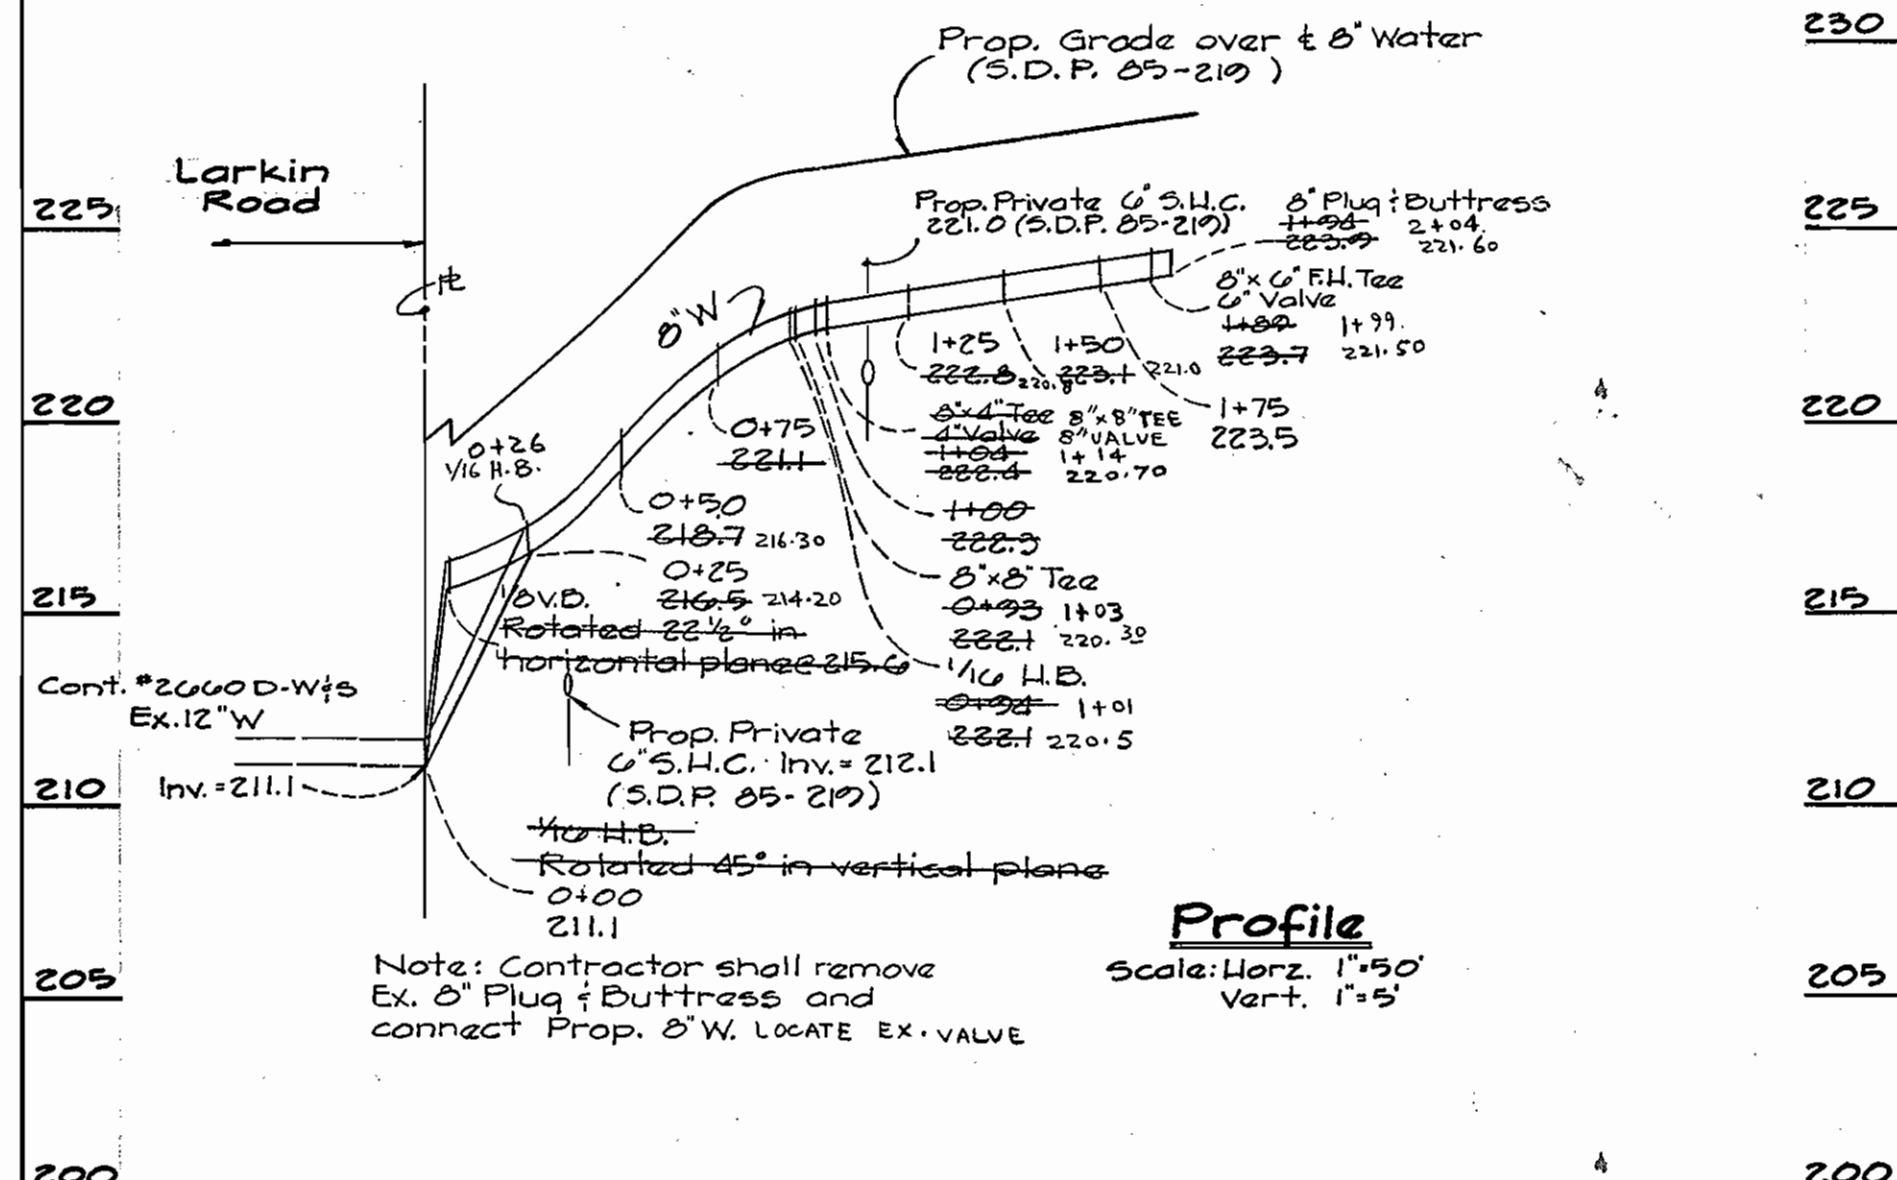 230
Prop. Grade over ℄ 8" Water
(S.D.P. 85-219)
Larkin
Road
225
225
Prop. Private 6" S.H.C.
221.0 (S.D.P. 85-219)
8" Plug & Buttress
1+94 2+04.
223.9 221.60
℄
8"W
8"x 6" F.H. Tee
6" Valve
1+89 1+99.
223.7 221.50
1+25
222.8 220.8
1+50
223.1 221.0
220
220
1+75
223.5
8"x4" Tee 8"x8" TEE
4" Valve 8" VALVE
1+04 1+14
222.4 220.70
0+75
221.1
0+26
1/16 H.B.
0+50
218.7 216.30
1+00
222.3
0+25
216.5 214.20
8"x8" Tee
0+93 1+03
222.1 220.30
215
215
1/8 V.B.
Rotated 22 1/2° in
horizontal plane 215.6
1/16 H.B.
0+94 1+01
222.1 220.5
Cont. #2660 D-W&S
Ex. 12"W
Prop. Private
6" S.H.C. Inv. = 212.1
(S.D.P. 85-219)
Inv. = 211.1
210
210
1/16 H.B.
Rotated 45° in vertical plane
0+00
211.1
Profile
Scale: Horz. 1"=50'
Vert. 1"=5'
Note: Contractor shall remove
Ex. 8" Plug & Buttress and
connect Prop. 8"W. LOCATE EX. VALVE
205
205
200
200